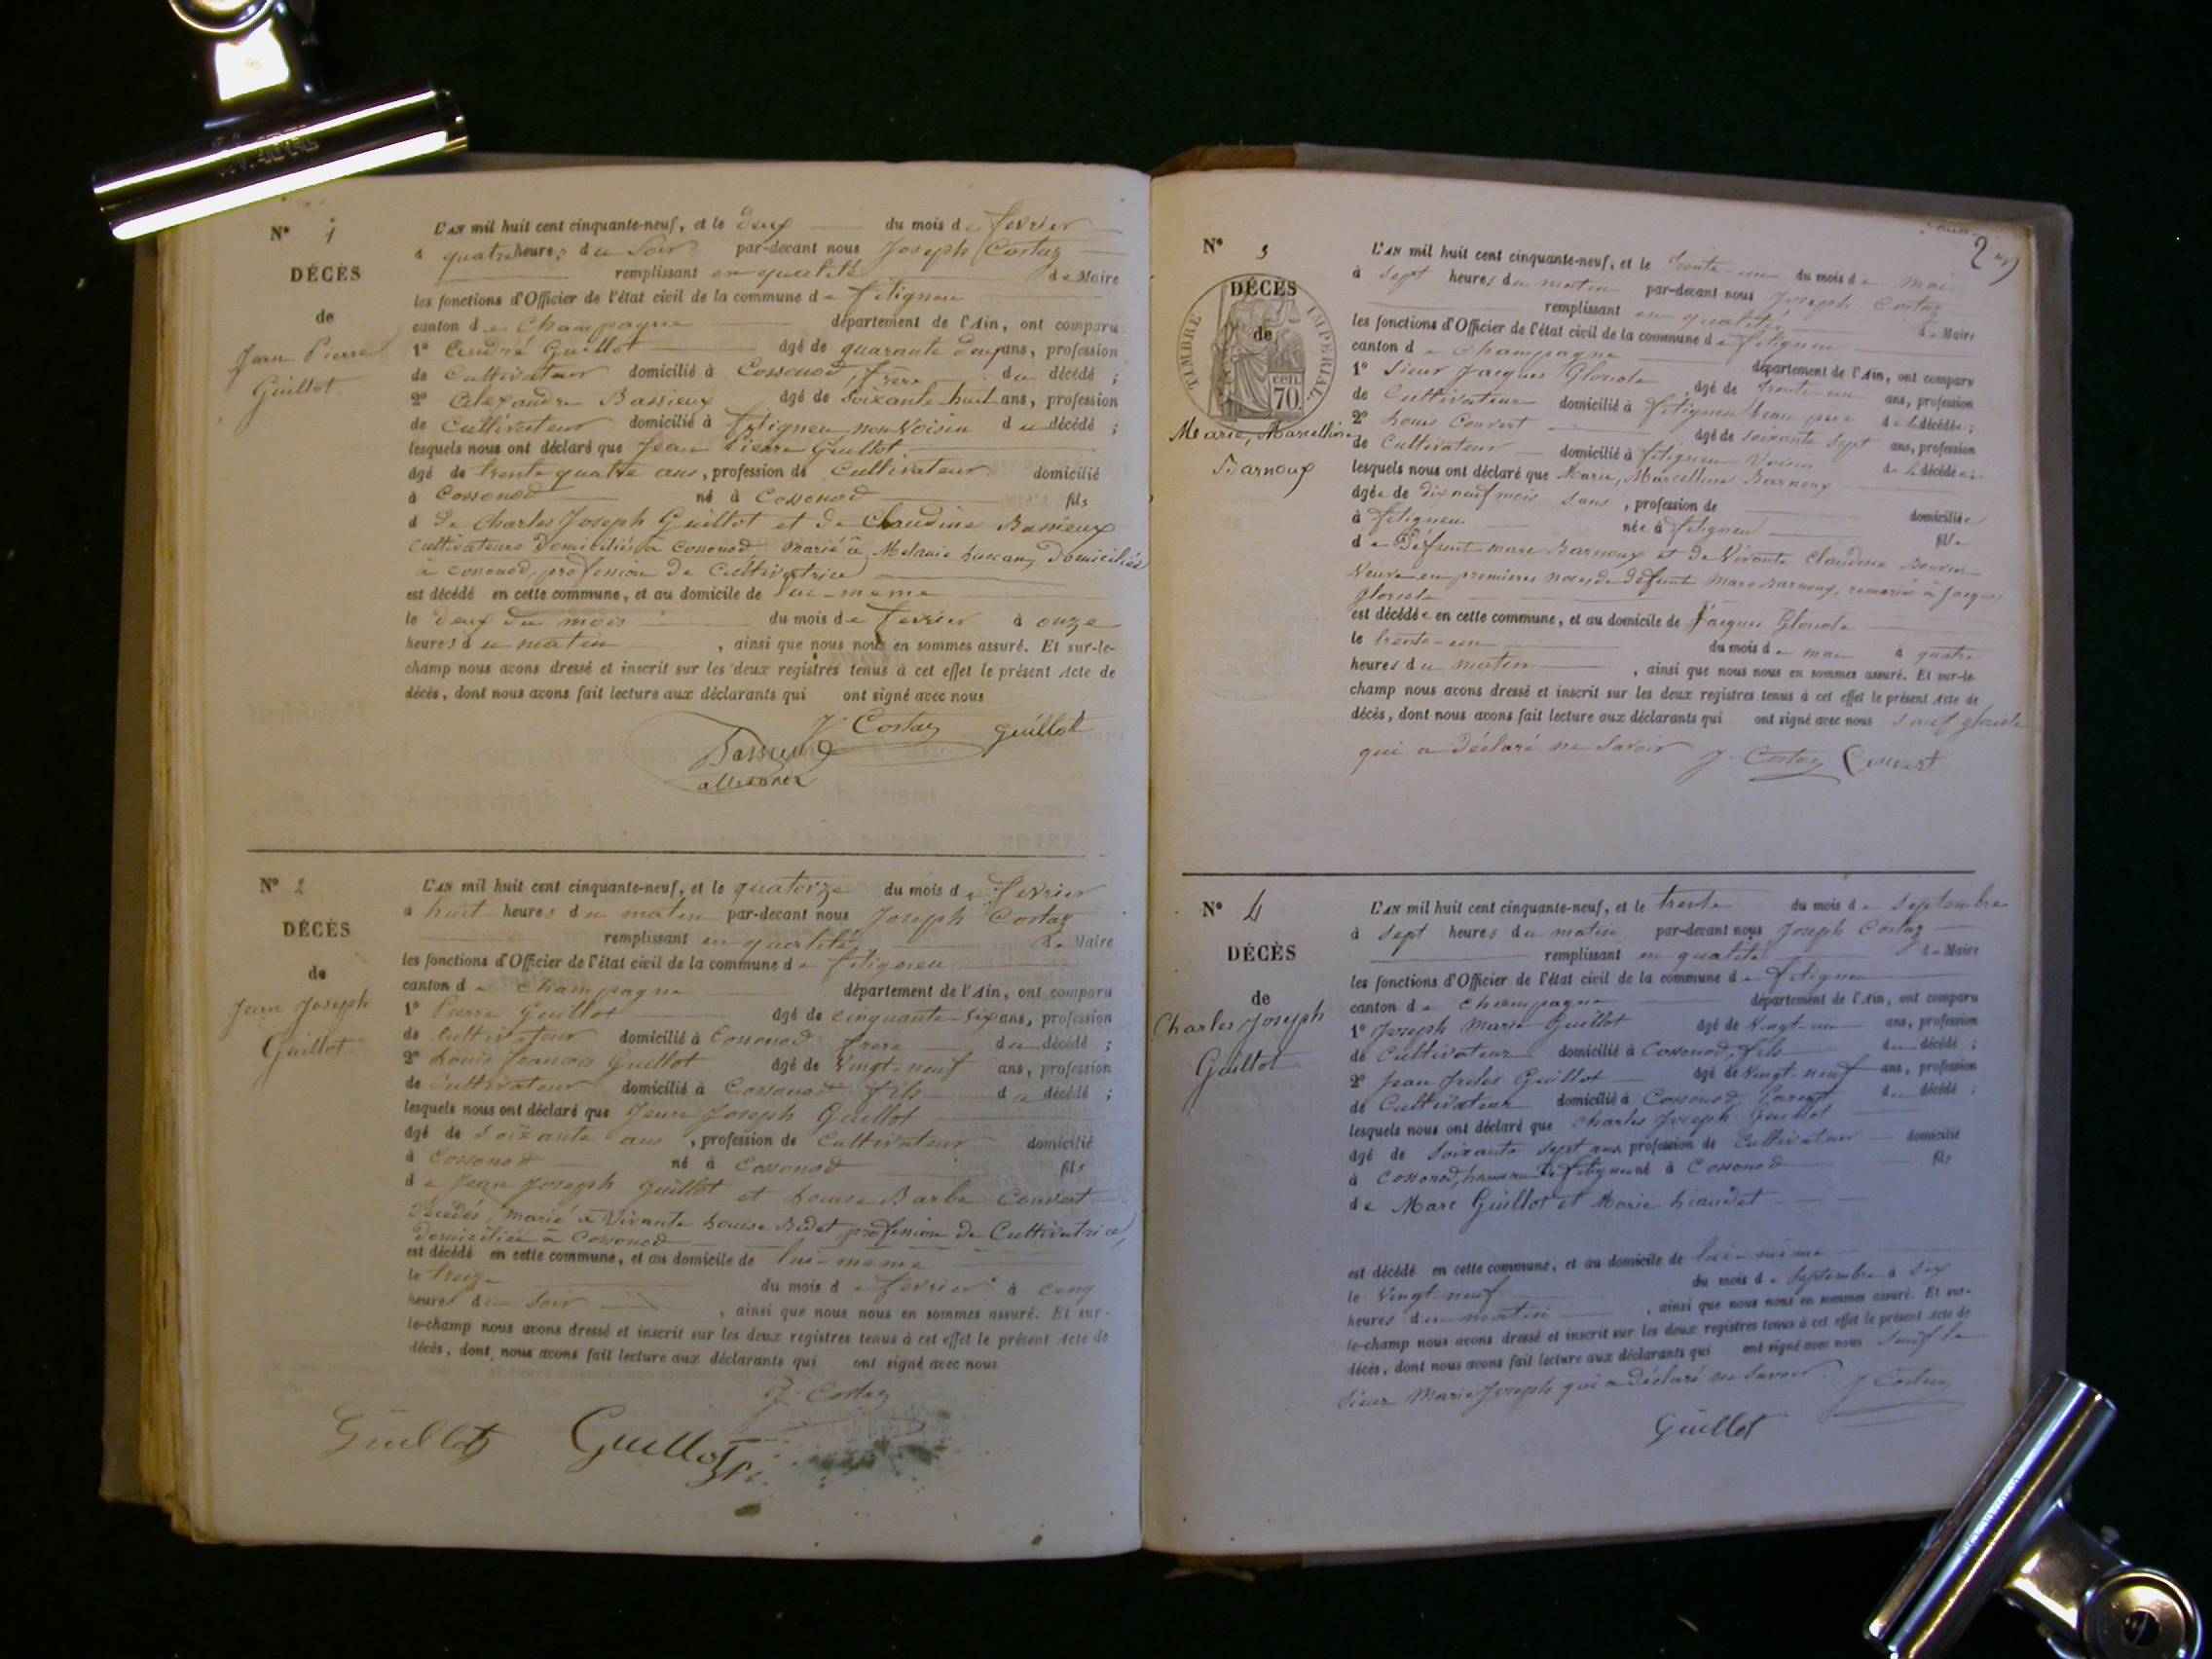 N° 1
DÉCÈS
de
Jean Pierre
Guillot.
L'AN mil huit cent cinquante-neuf, et le deux du mois de fevrier
à quatre heures du Soir par-devant nous Joseph Costaz
remplissant en qualité de Maire
les fonctions d'Officier de l'état civil de la commune de fitigneu
canton de Champagne département de l'Ain, ont comparu
1° André Guillot âgé de quarante deux ans, profession
de Cultivateur domicilié à Cossonod, frère du décédé ;
2° Alexandre Bassieux âgé de Soixante-huit ans, profession
de Cultivateur domicilié à fitigneu non Voisin du décédé ;
lesquels nous ont déclaré que Jean Pierre Guillot
âgé de trente quatre ans, profession de Cultivateur domicilié
à Cossonod né à Cossonod fils
d de Charles Joseph Guillot et de Claudine Bassieux
Cultivateurs Domiciliés à Cossonod, marié à Mélanie Domiciliée
à Cossonod, profession de Cultivatrice
est décédé en cette commune, et au domicile de lui-meme
le deux du mois du mois de fevrier à onze
heures du matin , ainsi que nous nous en sommes assuré. Et sur-le-
champ nous avons dressé et inscrit sur les deux registres tenus à cet effet le présent Acte de
décès, dont nous avons fait lecture aux déclarants qui ont signé avec nous
J Costaz guillot
N° 2
DÉCÈS
de
Jean Joseph
Guillot.
L'AN mil huit cent cinquante-neuf, et le quatorze du mois de fevrier
à huit heures du matin par-devant nous Joseph Costaz
remplissant en qualité de Maire
les fonctions d'Officier de l'état civil de la commune de fitigneu
canton de Champagne département de l'Ain, ont comparu
1° Pierre Guillot âgé de cinquante-Six ans, profession
de Cultivateur domicilié à Cossonod frere du décédé ;
2° Louis francois Guillot âgé de Vingt-neuf ans, profession
de Cultivateur domicilié à Cossonod fils du décédé ;
lesquels nous ont déclaré que Jean Joseph Guillot
âgé de Soixante ans , profession de Cultivateur domicilié
à Cossonod né à Cossonod fils
de Jean Joseph Guillot et Louise Barbe Convert
Décédés, marié à Vivante Louise Bidet, profession de Cultivatrice,
domiciliée à Cossonod
est décédé en cette commune, et au domicile de lui-meme
le treize du mois de fevrier à cinq
heures du Soir , ainsi que nous nous en sommes assuré. Et sur-
le-champ nous avons dressé et inscrit sur les deux registres tenus à cet effet le présent Acte de
décès, dont nous avons fait lecture aux déclarants qui ont signé avec nous
J. Costaz
Guillot Guillot
2
N° 3
DÉCÈS
de
TIMBRE IMPERIAL
cen.
70.
Marie, Marcelline
Barnoux
L'AN mil huit cent cinquante-neuf, et le trente-un du mois de mai
à Sept heures du matin par-devant nous Joseph Costaz
remplissant en qualité de Maire
les fonctions d'Officier de l'état civil de la commune de fitigneu
canton de Champagne département de l'Ain, ont comparu
1° Sieur Jacques Gloriole âgé de trente-un ans, profession
de Cultivateur domicilié à fitigneu beau pere de la décédée ;
2° Louis Convert âgé de soixante Sept ans, profession
de Cultivateur domicilié à fitigneu Voisin de la décédée
lesquels nous ont déclaré que Marie, Marcelline Barnoux
âgée de dix neuf mois sans , profession de domiciliée
à fitigneu née à fitigneu fille
de Défunt marc Barnoux et de Vivante Claudine
Veuve en premieres noces de défunt Marc Barnoux, remariée à Jacques
Gloriole
est décédée en cette commune, et au domicile de Jacques Gloriole
le trente-un du mois de mai à quatre
heures du matin , ainsi que nous nous en sommes assuré. Et sur-le-
champ nous avons dressé et inscrit sur les deux registres tenus à cet effet le présent Acte de
décès, dont nous avons fait lecture aux déclarants qui ont signé avec nous Sauf gloriole
qui a déclaré ne Savoir J. Costaz Convert
N° 4
DÉCÈS
de
Charles Joseph
Guillot
L'AN mil huit cent cinquante-neuf, et le trente du mois de Septembre
à Sept heures du matin par-devant nous Joseph Costaz
remplissant en qualité de Maire
les fonctions d'Officier de l'état civil de la commune de fitigneu
canton de Champagne département de l'Ain, ont comparu
1° Joseph Marie Guillot âgé de Vingt-un ans, profession
de Cultivateur domicilié à Cossonod, fils du décédé ;
2° Jean Jules Guillot âgé de Vingt-neuf ans, profession
de Cultivateur domicilié à Cossonod, Parent du décédé ;
lesquels nous ont déclaré que Charles Joseph Guillot
âgé de Soixante Sept ans, profession de Cultivateur domicilié
à Cossonod, hameau de fitigneu né à Cossonod fils
de Marc Guillot et Marie Liaudet
est décédé en cette commune, et au domicile de lui-même
le Vingt-neuf du mois de Septembre à Six
heures du matin , ainsi que nous nous en sommes assuré. Et sur-
le-champ nous avons dressé et inscrit sur les deux registres tenus à cet effet le présent Acte de
décès, dont nous avons fait lecture aux déclarants qui ont signé avec nous Sauf le
Sieur Marie Joseph qui a déclaré ne Savoir. J Costaz
Guillot